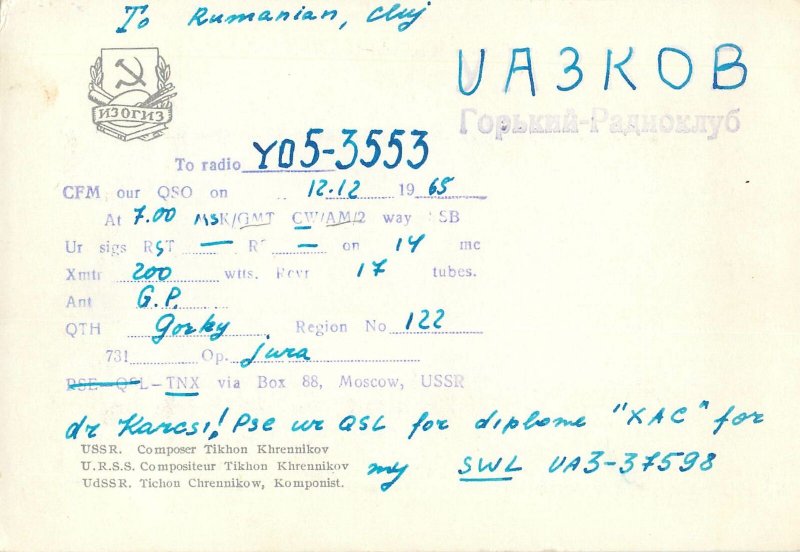 To Rumanian, Cluj
UA3KOB
ИЗОГИЗ
Горький-Радиоклуб
To radio YO5-3553
CFM our QSO on 12.12 1965
At 7.00 MSK/GMT CW/AM/2 way SSB
Ur sigs RST — RS — on 14 mc
Xmtr 200 wtts. Rcvr 17 tubes.
Ant G.P.
QTH Gorky Region No 122
731 Op. Jura
PSE-QSL-TNX via Box 88, Moscow, USSR
dr Karcsi! Pse ur QSL for diplome "XAC" for
my SWL UA3-37598
USSR. Composer Tikhon Khrennikov
U.R.S.S. Compositeur Tikhon Khrennikov
UdSSR. Tichon Chrennikow, Komponist.